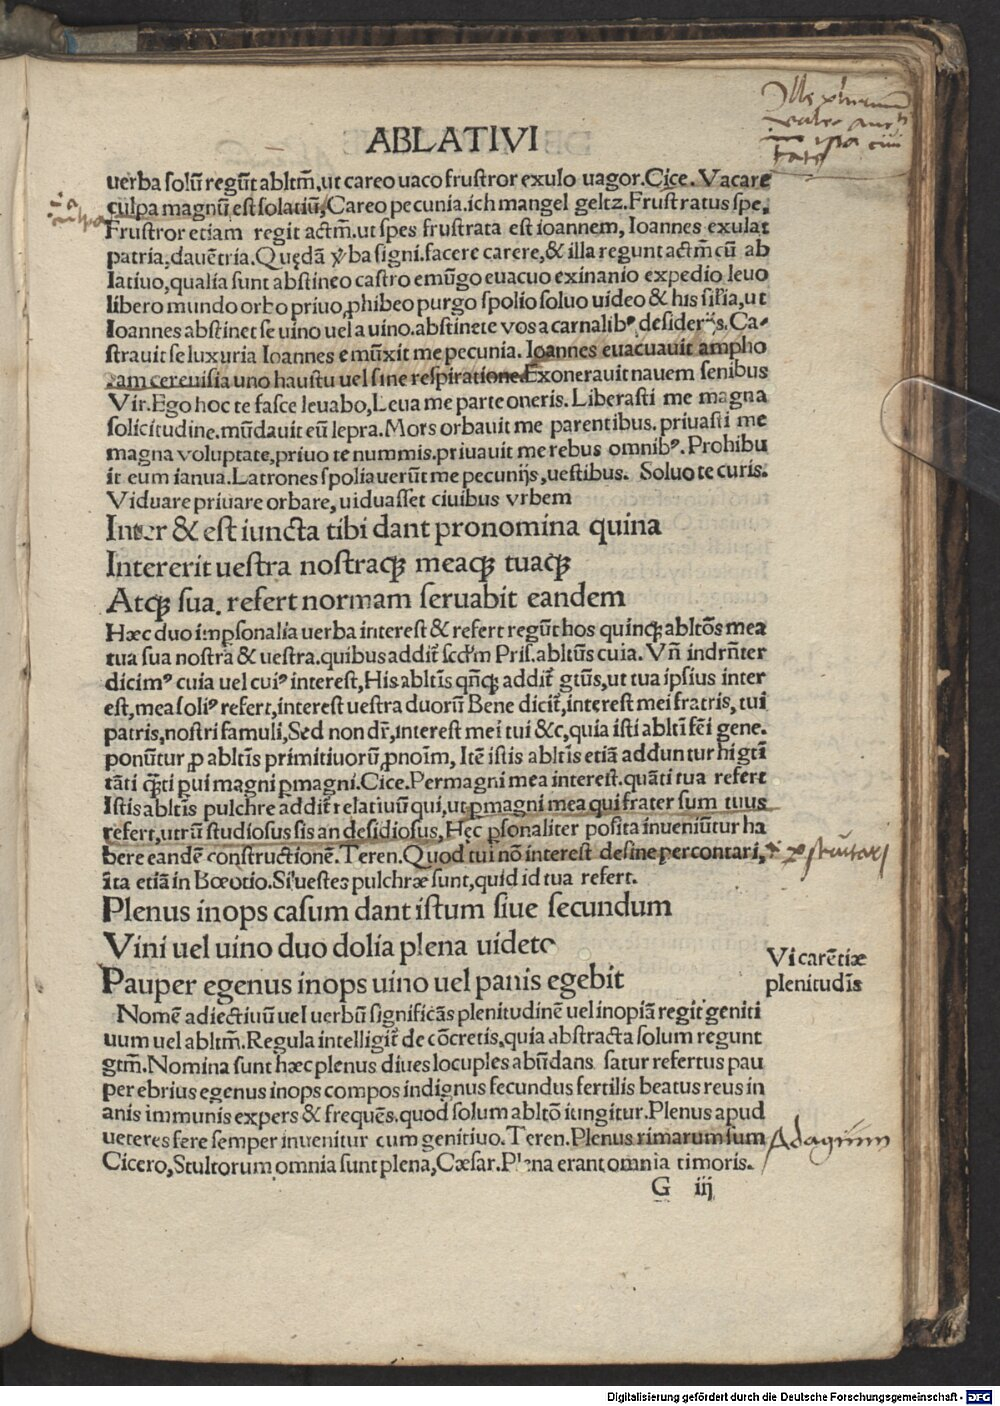 ABLATIVI
uerba solũ regũt abltm̃, ut careo uaco frustror exulo uagor. Cice. Vacare
culpa magnũ est solatiũ, Careo pecunia. ich mangel geltz. Frustratus spe,
Frustror etiam regit actm̃. ut spes frustrata est ioannem, Ioannes exulat
patria, dauẽtria. Quędã ỹba signi. facere carere, & illa regunt actm̃ cũ ab
latiuo, qualia sunt abstineo castro emũgo euacuo exinanio expedio leuo
libero mundo orbo priuo, ꝓhibeo purgo spolio soluo uideo & his sil̃ia, ut
Ioannes abstinet se uino uel a uino. abstinete vos a carnalibꝰ desiderijs. Ca-
strauit se luxuria Ioannes emũxit me pecunia. Ioannes euacuauit ampho
ram cereuisia uno haustu uel sine respiratione. Exonerauit nauem senibus
Vir. Ego hoc te fasce leuabo, Leua me parte oneris. Liberasti me magna
solicitudine. mũdauit eũ lepra. Mors orbauit me parentibus. priuasti me
magna voluptate, priuo te nummis. priuauit me rebus omnibꝰ. Prohibu
it eum ianua. Latrones spoliauerũt me pecunijs, uestibus. Soluo te curis.
Viduare priuare orbare, uiduasset ciuibus vrbem
Inter & est iuncta tibi dant pronomina quina
Intererit uestra nostraqꝫ meaqꝫ tuaqꝫ
Atqꝫ sua. refert normam seruabit eandem
Hæc duo imꝑsonalia uerba interest & refert regũt hos quinqꝫ abltõs mea
tua sua nostra & uestra. quibus addit̃ scd'm Pris. abltũs cuia. Vñ indrñter
dicimꝰ cuia uel cuiꝰ interest, His abltĩs qñqꝫ addit̃ gtũs, ut tua ipsius inter
est, mea soliꝰ refert, interest uestra duorũ Bene dicit̃, interest mei fratris, tui
patris, nostri famuli, Sed non dr̃, interest mei tui &c, quia isti abltĩ fẽi gene.
ponũtur ꝓ abltĩs primitiuorũ ꝓnoĩm, Itẽ istis abltĩs etiã adduntur hi gtĩ
tãti quãti ꝑui magni ꝑmagni. Cice. Permagni mea interest. quãti tua refert
Istis abltĩs pulchre addit̃ relatiuũ qui, ut ꝑmagni mea qui frater sum tuus
refert, utrũ studiosus sis an desidiosus, Hęc ꝑsonaliter posita inueniũtur ha
bere eandẽ constructionẽ. Teren. Quod tui nõ interest desine percontari,
ita etiã in Bœotio. Si uestes pulchræ sunt, quid id tua refert.
Plenus inops casum dant istum siue secundum
Vini uel uino duo dolia plena uideto
Pauper egenus inops uino uel panis egebit
Vi carẽtiæ
plenitudĩs
Nomẽ adiectiuũ uel uerbũ significãs plenitudinẽ uel inopiã regit geniti
uum uel abltm̃. Regula intelligit̃ de cõcretis, quia abstracta solum regunt
gtm̃. Nomina sunt hæc plenus diues locuples abũdans satur refertus pau
per ebrius egenus inops compos indignus fecundus fertilis beatus reus in
anis immunis expers & frequẽs. quod solum abltõ iungitur. Plenus apud
ueteres fere semper inuenitur cum genitiuo. Teren. Plenus rimarum sum
Adagium
Cicero, Stultorum omnia sunt plena, Cæsar. Plena erant omnia timoris.
G iij
Digitalisierung gefördert durch die Deutsche Forschungsgemeinschaft - DFG